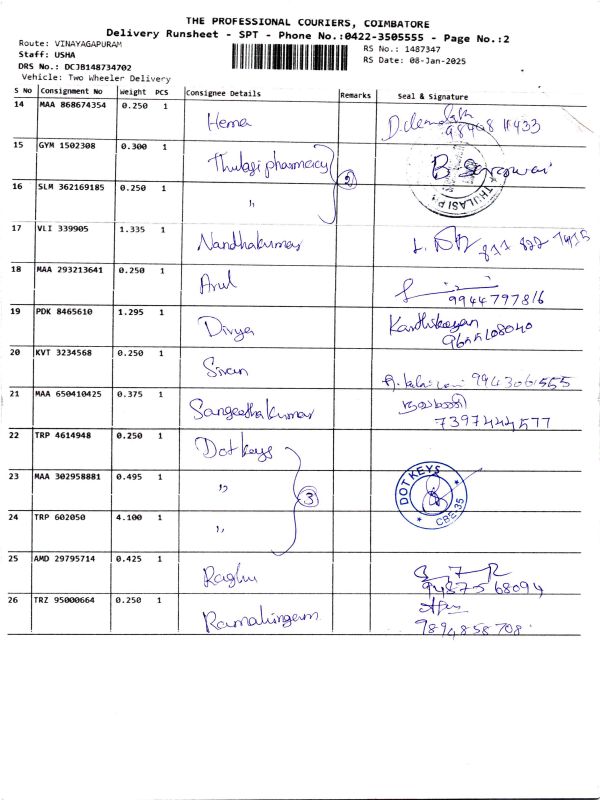 THE PROFESSIONAL COURIERS, COIMBATORE
Delivery Runsheet - SPT - Phone No.:0422-3505555 - Page No.:2
Route: VINAYAGAPURAM
Staff: USHA
DRS No.: DCJB148734702
Vehicle: Two Wheeler Delivery
RS No.: 1487347
RS Date: 08-Jan-2025
S No Consignment No Weight PCS Consignee Details Remarks Seal & Signature
14 MAA 868674354 0.250 1 Hema
15 GYM 1502308 0.300 1 Thulasi pharmacy
2
16 SLM 362169185 0.250 1 "
THULASI PH
17 VLI 339905 1.335 1 Nandhakumar
18 MAA 293213641 0.250 1 Arul
9944797816
19 PDK 8465610 1.295 1 Divya Karthikeyan
20 KVT 3234568 0.250 1 Sivan 9943061555
21 MAA 650410425 0.375 1 Sangeethakumar
7397444577
22 TRP 4614948 0.250 1 Dot keys
23 MAA 302958881 0.495 1 "
3
DOT KEYS
CBE-35
24 TRP 602050 4.100 1 "
25 AMD 29795714 0.425 1 Raghu
94875 68094
26 TRZ 95000664 0.250 1 Ramalingam
9894858708